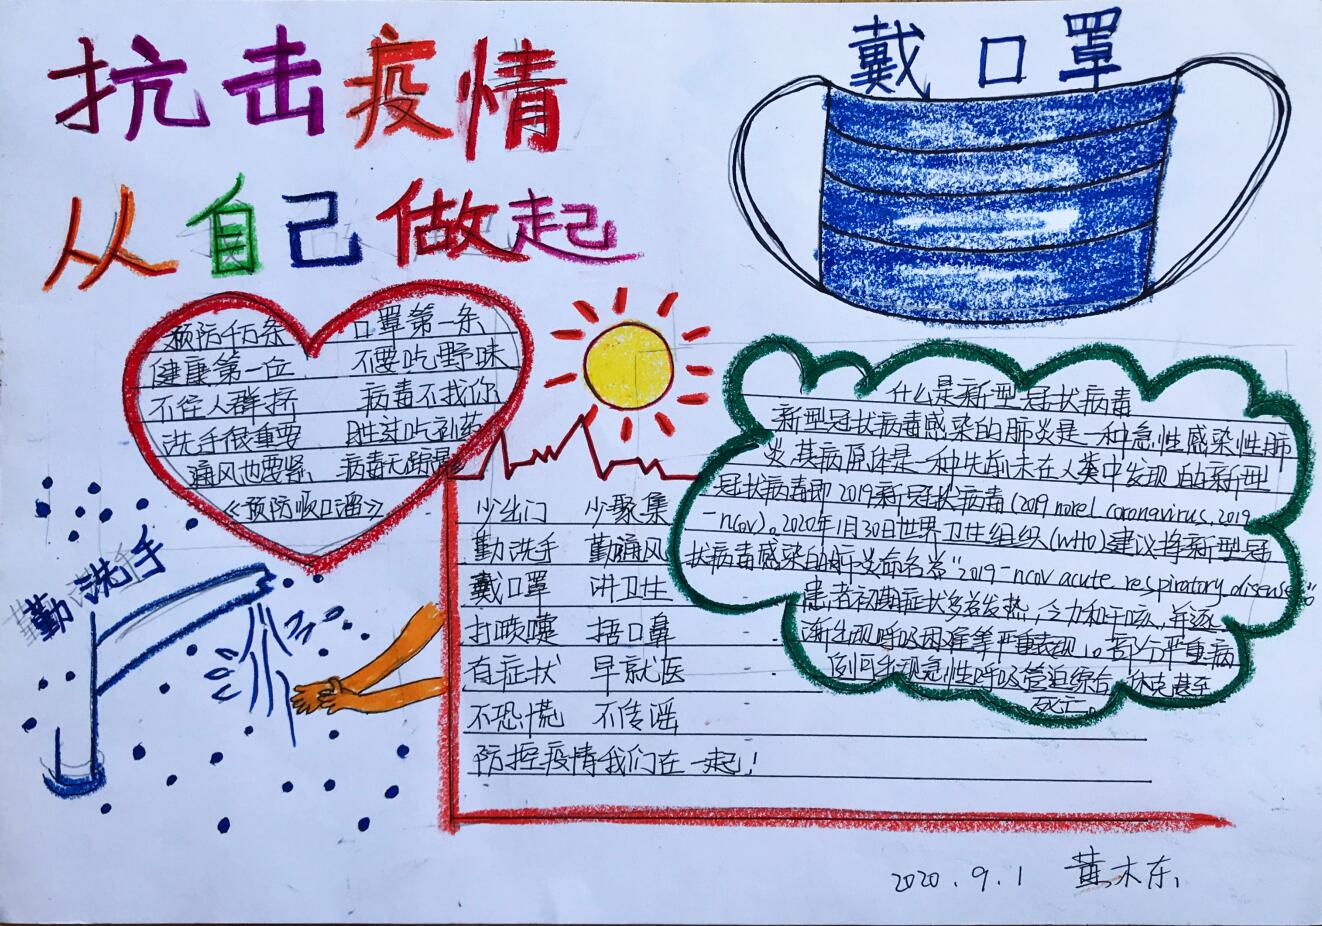 抗击疫情
从自己做起
戴口罩
预防千万条 口罩第一条
健康第一位 不要吃野味
不往人群挤 病毒不找你
洗手很重要 胜过吃补药
通风也要紧 病毒无踪影
《预防顺口溜》
勤洗手
少出门 少聚集
勤洗手 勤通风
戴口罩 讲卫生
打喷嚏 捂口鼻
有症状 早就医
不恐慌 不传谣
防控疫情我们在一起!
什么是新型冠状病毒
新型冠状病毒感染的肺炎是一种急性感染性肺
炎,其病原体是一种先前未在人类中发现的新型
冠状病毒即2019新冠状病毒(2019 novel coronavirus,2019
-ncov)。2020年1月30日世界卫生组织(WHO)建议将新型冠
状病毒感染的肺炎命名为"2019-ncov acute respiratory disense"。
患者初期症状多为发热,乏力和干咳,并逐
渐出现呼吸困难等严重表现。部分严重病
例可出现急性呼吸窘迫综合 休克甚至
死亡。
2020.9.1 黄木东